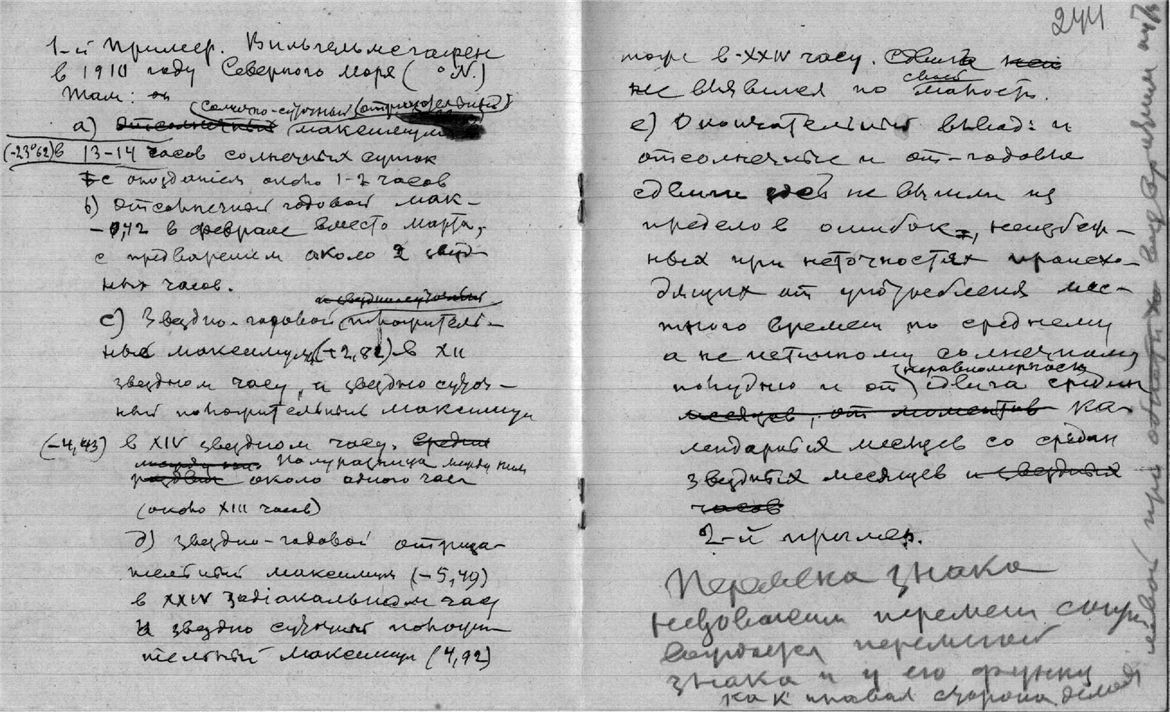 1-й Пример. Вильгельмсгафен
в 1910 году Северного моря ( ° N.)
Там:
(солнечно-суточный (отрицательный)
а) отсолнечный максимум
(-23°62) в 13-14 часов солнечных суток
с опозданием около 1-2 часов
b) отсолнечный годовой мак-
в феврале вместо марта,
с предварением около 2 звезд-
ных часов.
и звездносуточный
с) Звездно-годовой положитель-
ный максимум (+2,82) в XII
звездном часу, а звездно суточ-
ный положительный максимум
(-4,43) в XIV звездном часу. Средний
между ними Полуразница между ними
около одного часа
(около XIII часов)
д) звездно-годовой отрица-
тельный максимум (-5,49)
в XXIV зодиакальном часу
а звездно суточный положи-
тельный максимум (4,92)
244
тоже в XXIV часу. Сдвига
не выявился по своей малости.
е) Окончательный вывод: и
отсолнечные и от-годовые
сдвиги здесь не вышли из
пределов ошибок, неизбеж-
ных при неточностях происхо-
дящих от употребления мес-
тного времени по среднему
а не истинному солнечному
(неравномерности
полудню и от сдвига средин
месяцев, от моментов ка-
лендарных месяцев со средин
звездных месяцев и звездных
часов
2-й пример.
Перемена знака
перемены
перемены
знака и у его функц
как правая сторона делает
левой при